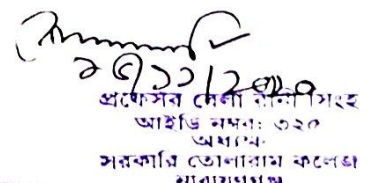 প্রফেসর বেলা রানী সিংহ
আইডি নম্বর: ৩২০
অধ্যক্ষ
সরকারি তোলারাম কলেজ
নারায়ণগঞ্জ